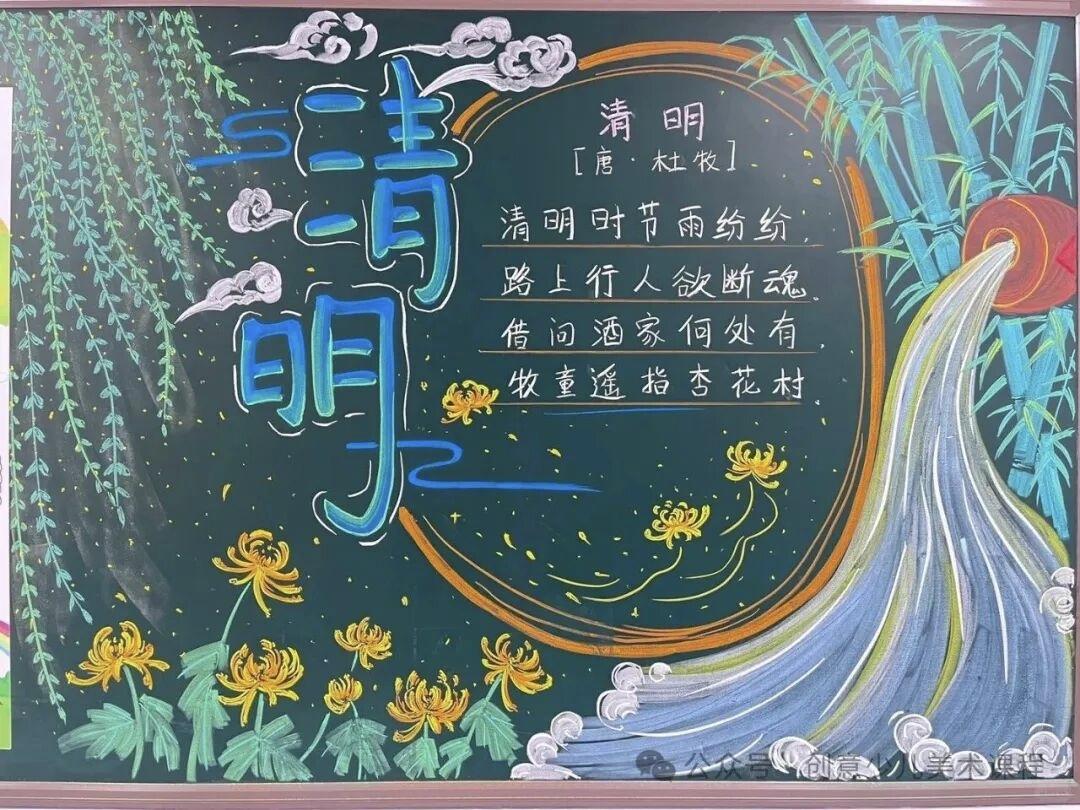 清明
清明
[唐·杜牧]
清明时节雨纷纷，
路上行人欲断魂。
借问酒家何处有，
牧童遥指杏花村
公众号·创意少儿美术课程